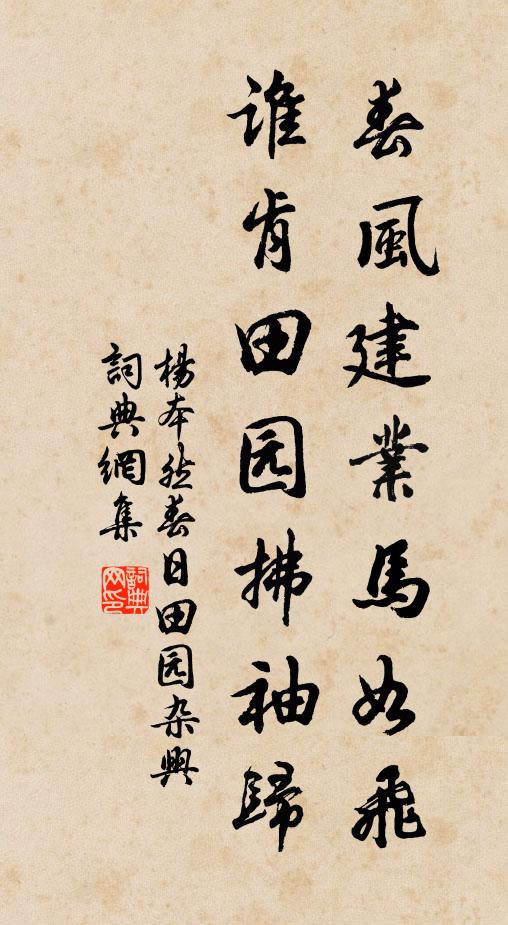 春風建業馬如飛
谁肯田园拂袖歸
楊本然春日田园杂興
詞典網集
詞典网印